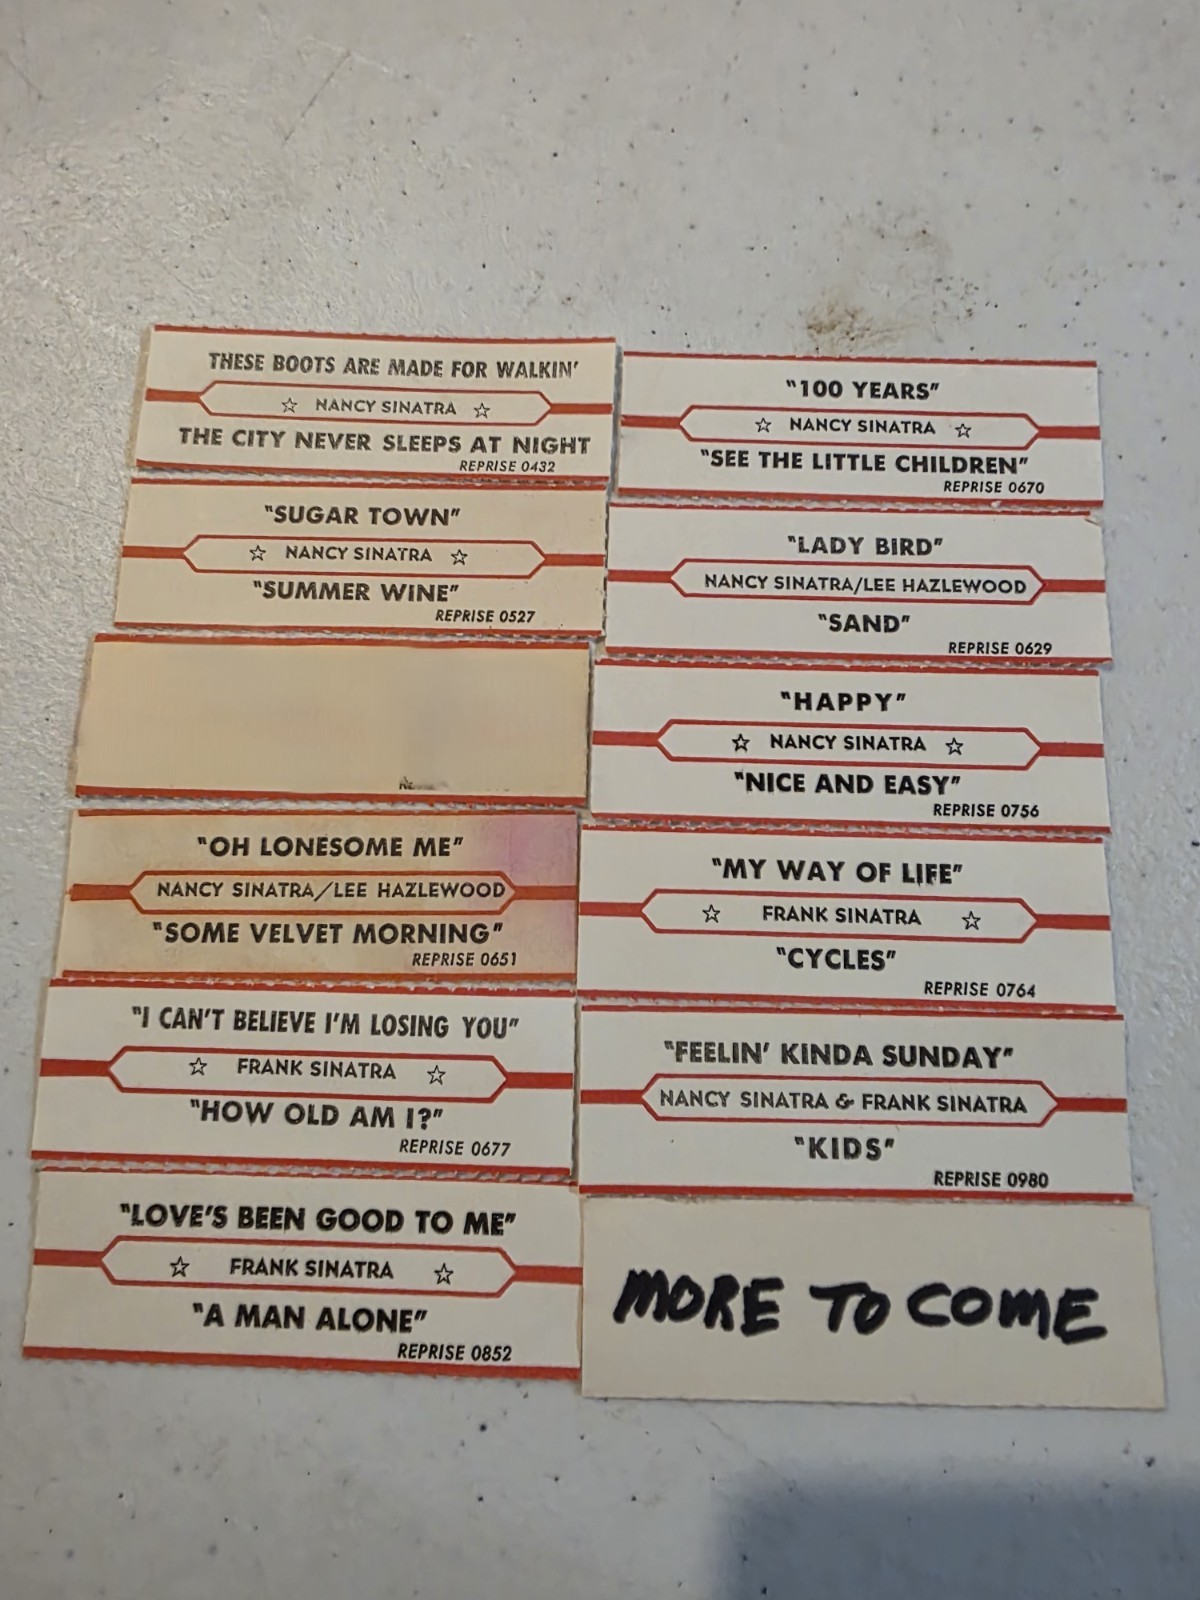 THESE BOOTS ARE MADE FOR WALKIN'
☆ NANCY SINATRA ☆
THE CITY NEVER SLEEPS AT NIGHT
REPRISE 0432
"SUGAR TOWN"
☆ NANCY SINATRA ☆
"SUMMER WINE"
REPRISE 0527
"OH LONESOME ME"
NANCY SINATRA/LEE HAZLEWOOD
"SOME VELVET MORNING"
REPRISE 0651
"I CAN'T BELIEVE I'M LOSING YOU"
☆ FRANK SINATRA ☆
"HOW OLD AM I?"
REPRISE 0677
"LOVE'S BEEN GOOD TO ME"
☆ FRANK SINATRA ☆
"A MAN ALONE"
REPRISE 0852
"100 YEARS"
☆ NANCY SINATRA ☆
"SEE THE LITTLE CHILDREN"
REPRISE 0670
"LADY BIRD"
NANCY SINATRA/LEE HAZLEWOOD
"SAND"
REPRISE 0629
"HAPPY"
☆ NANCY SINATRA ☆
"NICE AND EASY"
REPRISE 0756
"MY WAY OF LIFE"
☆ FRANK SINATRA ☆
"CYCLES"
REPRISE 0764
"FEELIN' KINDA SUNDAY"
NANCY SINATRA & FRANK SINATRA
"KIDS"
REPRISE 0980
MORE TO COME